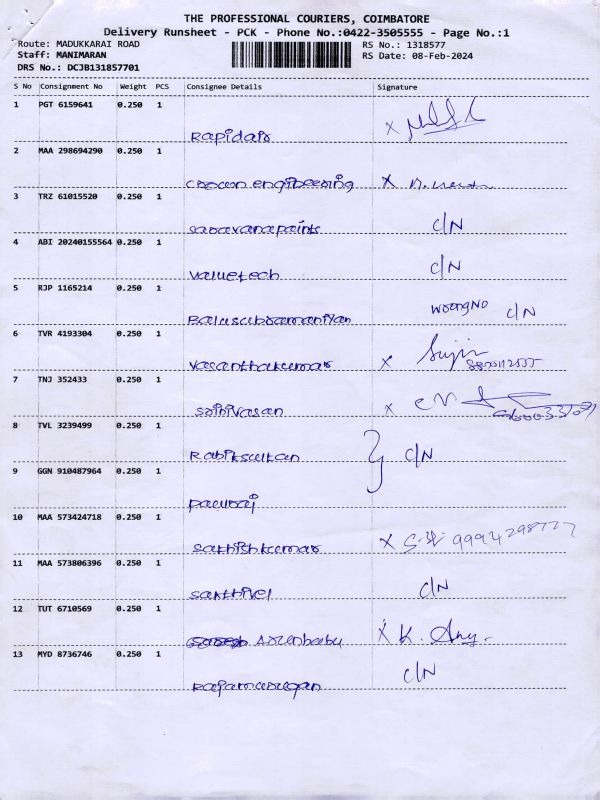 THE PROFESSIONAL COURIERS, COIMBATORE
Delivery Runsheet - PCK - Phone No.:0422-3505555 - Page No.:1
Route: MADUKKARAI ROAD RS No.: 1318577
Staff: MANIMARAN RS Date: 08-Feb-2024
DRS No.: DCJB131857701
S No Consignment No Weight PCS Consignee Details Signature
1 PGT 6159641 0.250 1
Rapidair X
2 MAA 298694290 0.250 1
crown engineering X
3 TRZ 61015520 0.250 1
saravanapaints C/N
4 ABI 20240155564 0.250 1
valuetech C/N
5 RJP 1165214 0.250 1
Balasubramaniyan wrong NO C/N
6 TVR 4193304 0.250 1
vasanthakumar X Sujin
7 TNJ 352433 0.250 1
srinivasan X
8 TVL 3239499 0.250 1
Rabiksultan C/N
9 GGN 910487964 0.250 1
paulraj
10 MAA 573424718 0.250 1
sathishkumar X
11 MAA 573806396 0.250 1
sakthivel C/N
12 TUT 6710569 0.250 1
X K.
13 MYD 8736746 0.250 1
Rajamurugan C/N